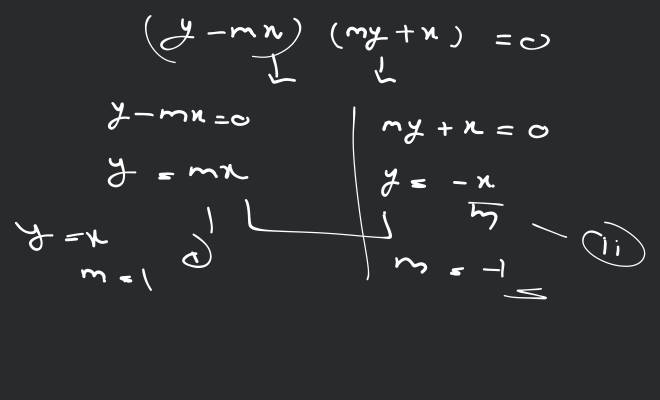 (y - mx) (my + x) = 0
y - mx = 0
my + x = 0
y = mx
y = -x/m
y = x
m = 1
m = -1
ii